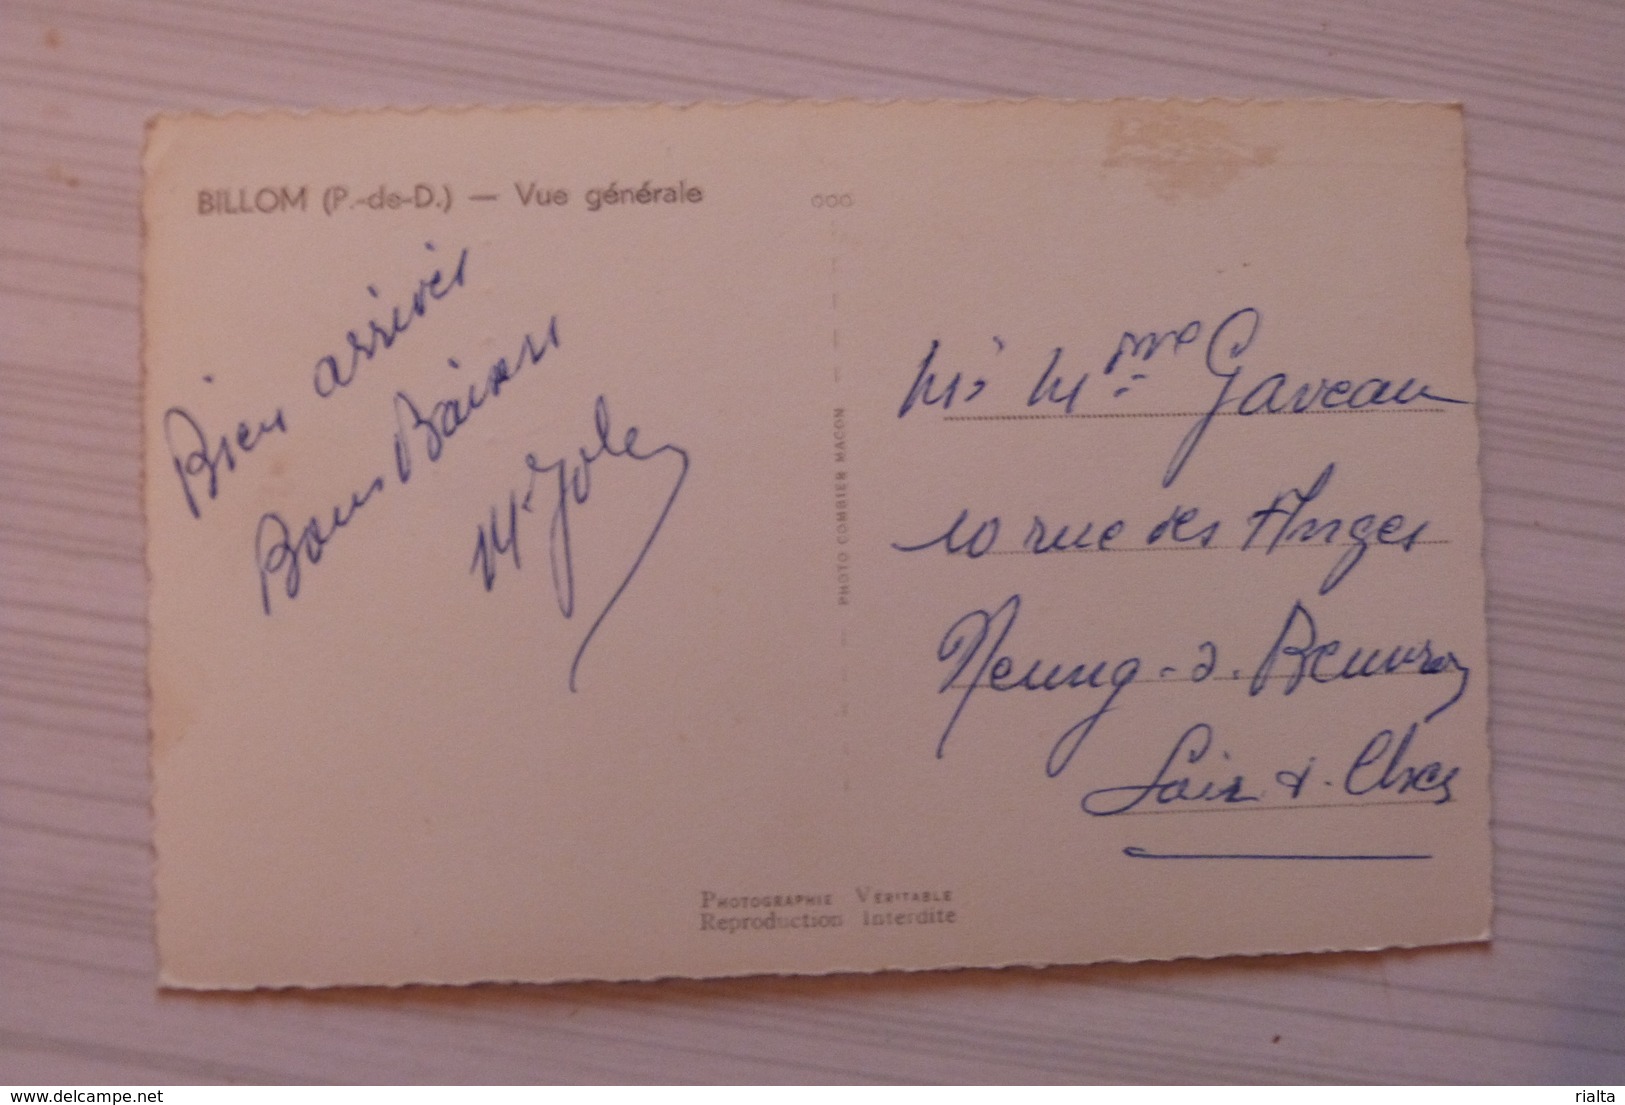 BILLOM (P.-de-D.) — Vue générale
Bien arrivés
Bons Baisers
PHOTO COMBIER MACON
Mme Gaveau
10 rue des Anges
Neung-s. Beuvron
Loir & Cher
PHOTOGRAPHIE VÉRITABLE
Reproduction Interdite
www.delcampe.net
rialta